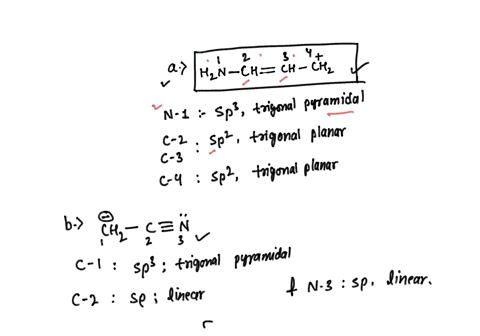 a.) H₂N–CH=CH–CH₂⁺
1 2 3 4
N-1 :- sp³, trigonal pyramidal
C-2
C-3 : sp², trigonal planar
C-4 : sp², trigonal planar
b.) ⊖CH₂–C≡N̈
1 2 3
C-1 : sp³ ; trigonal pyramidal
C-2 : sp ; linear
& N-3 : sp, linear.